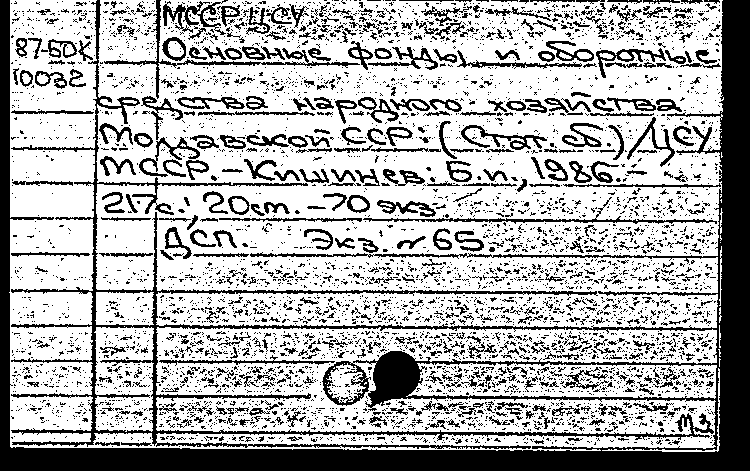 МССР ЦСУ
87-БОК
10032
Основные фонды и оборотные
средства народного хозяйства
Молдавской ССР: (Стат. сб.) / ЦСУ
МССР. – Кишинев: Б.и., 1986. –
217с.; 20см. – 70 экз.
ДСП. Экз. № 65.
М.З.